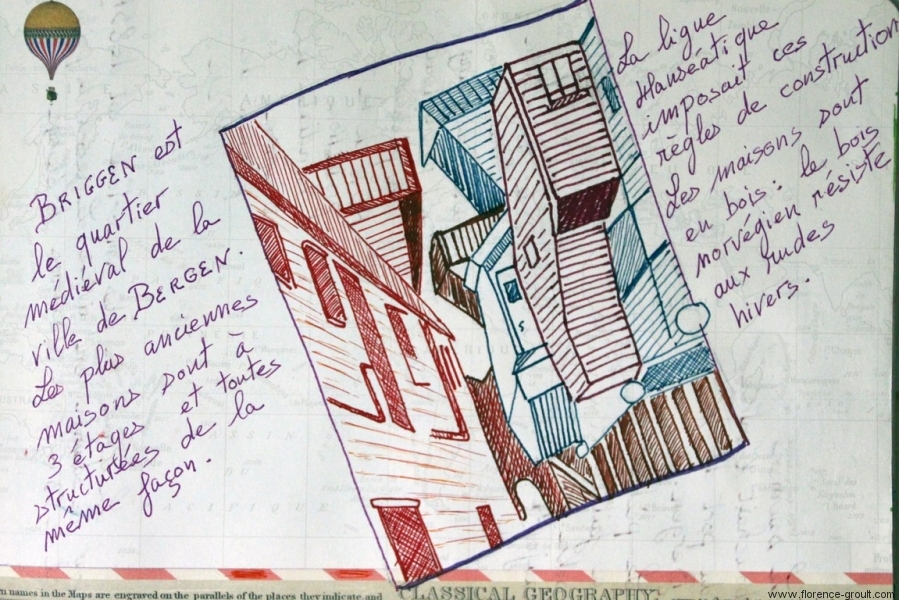 BRIGGEN est
le quartier
médiéval de la
ville de BERGEN.
Les plus anciennes
maisons sont à
3 étages et toutes
structurées de la
même façon.
La ligue
Hanséatique
imposait ces
règles de construction
Les maisons sont
en bois: le bois
norvégien résiste
aux rudes
hivers.
names in the Maps are engraved on the parallels of the places they indicate, and
CLASSICAL GEOGRAPHY
www.florence-groult.com